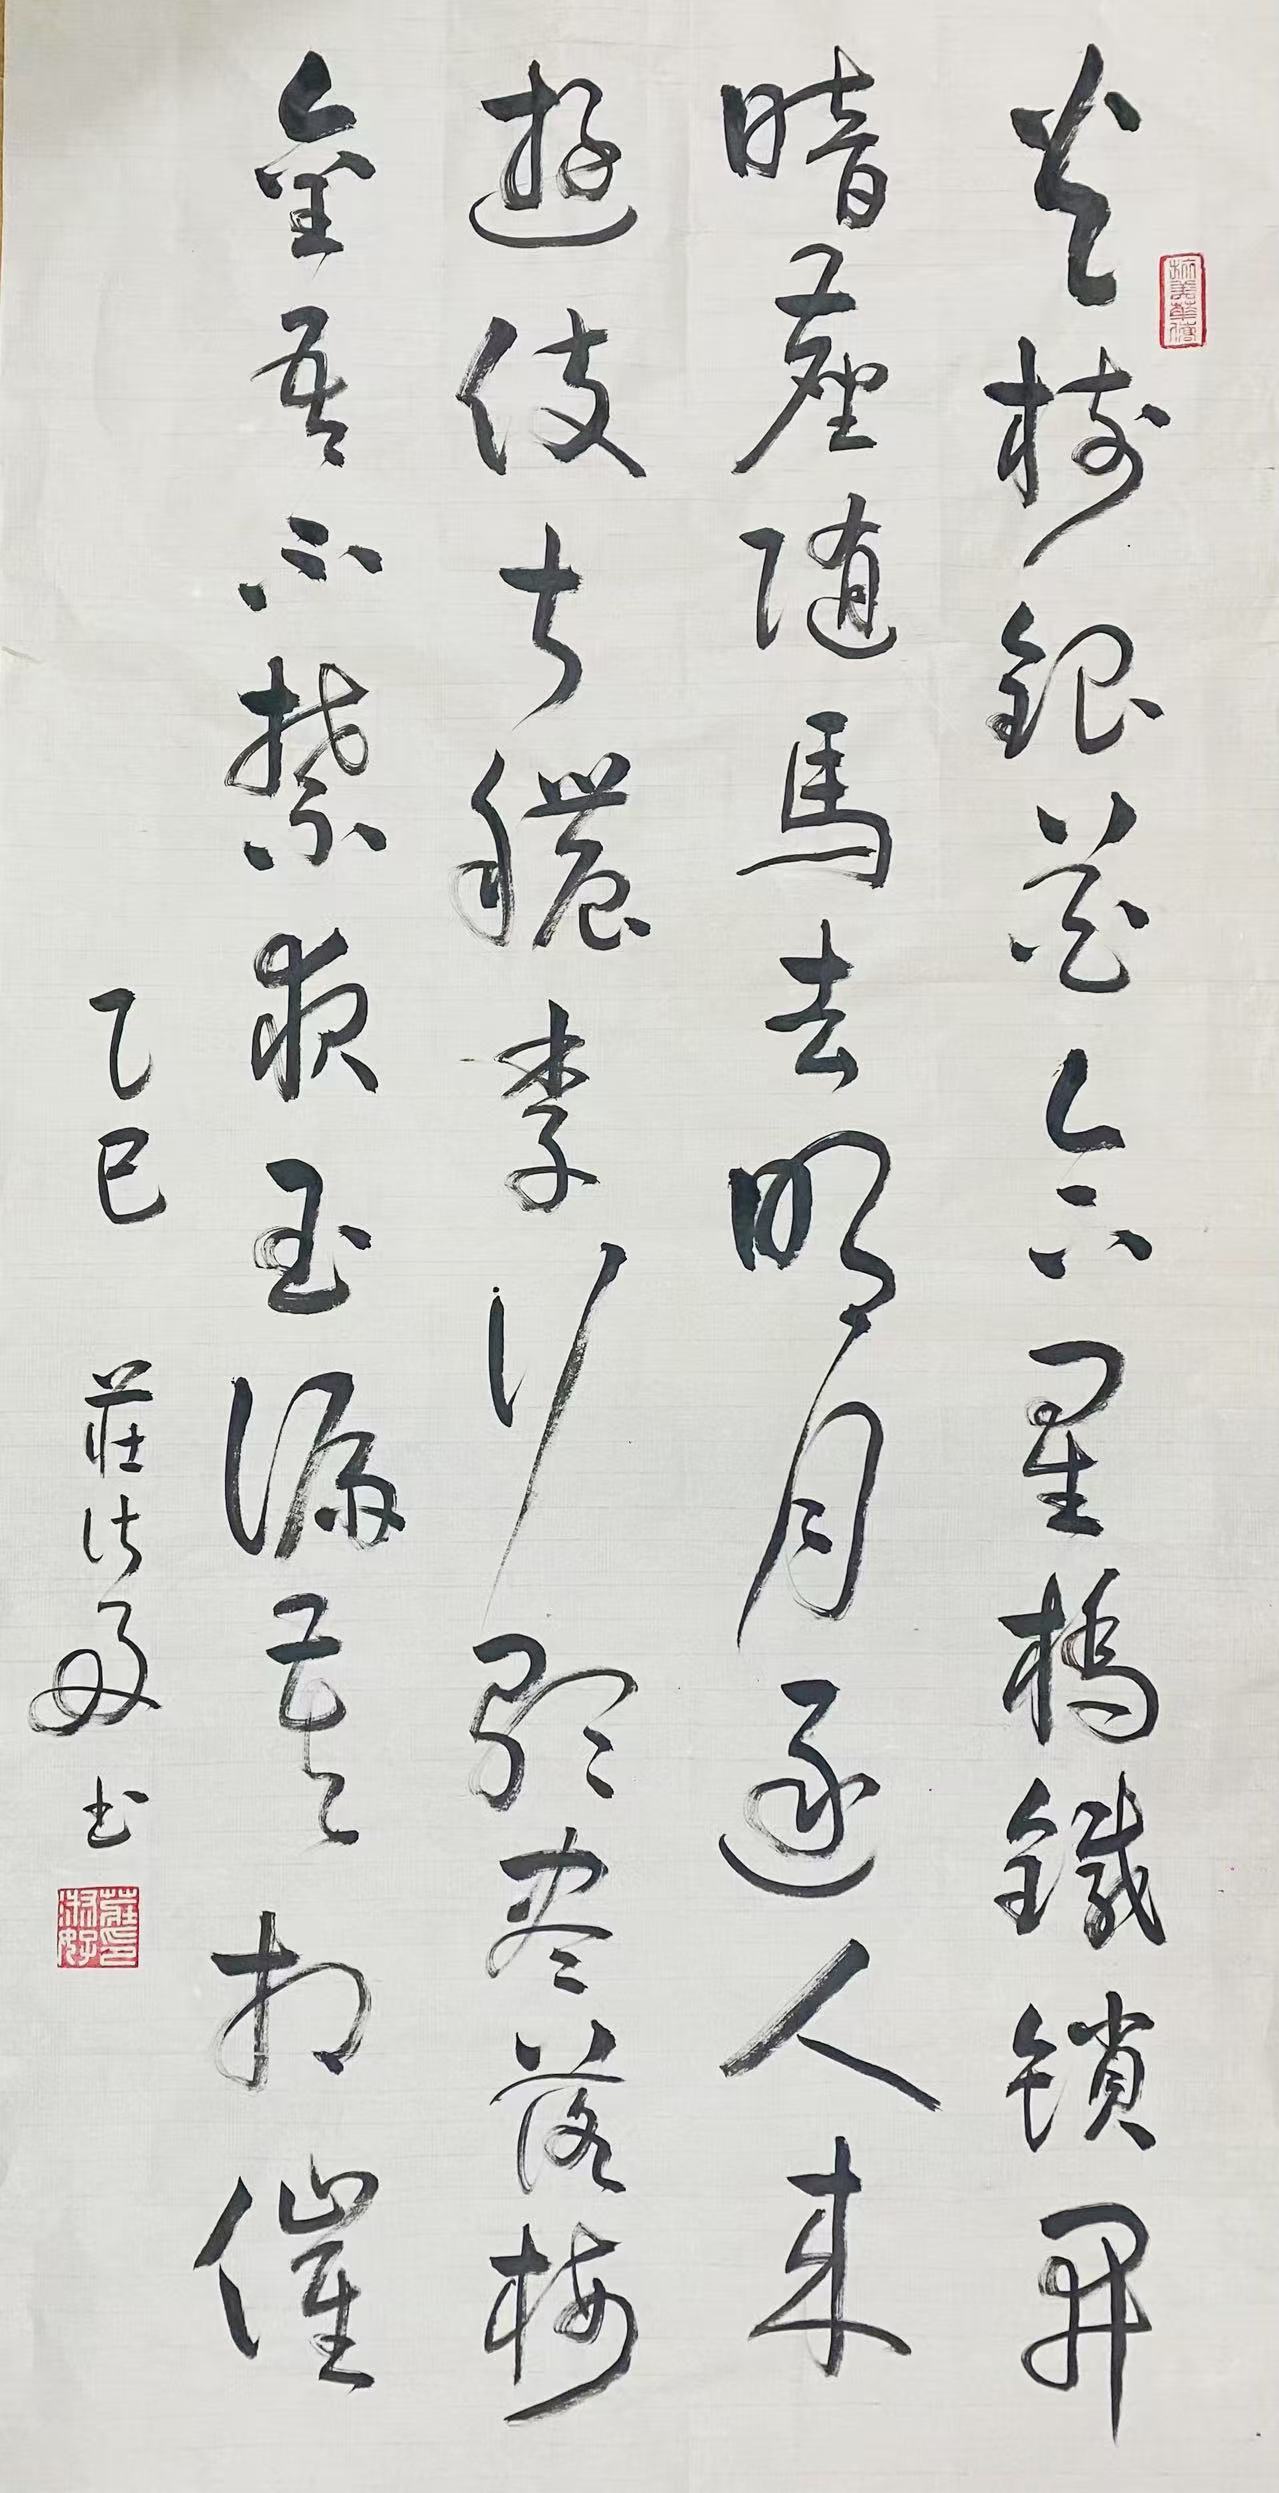 火樹銀花合星橋鐵鎖開
暗塵随馬去明月逐人来
遊伎皆穠李行歌盡落梅
金吾不禁夜玉漏莫相催
乙巳 莊淑好书
莊印淑好